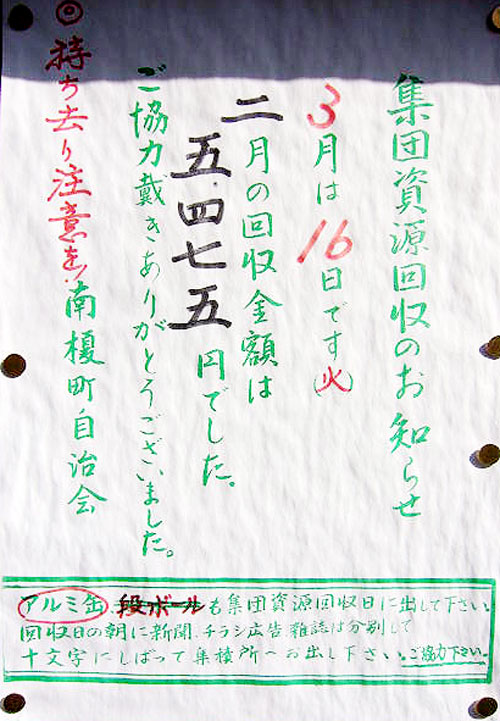 集団資源回収のお知らせ
3月は16日です(火)
二月の回収金額は
五.四七五円でした。
ご協力戴きありがとうございました。
◎持ち去り注意を!南榎町自治会
アルミ缶、段ボールも集団資源回収日に出して下さい。
回収日の朝に新聞、チラシ広告雑誌は分別して
十文字にしばって集積所へお出し下さい。ご協力下さい。